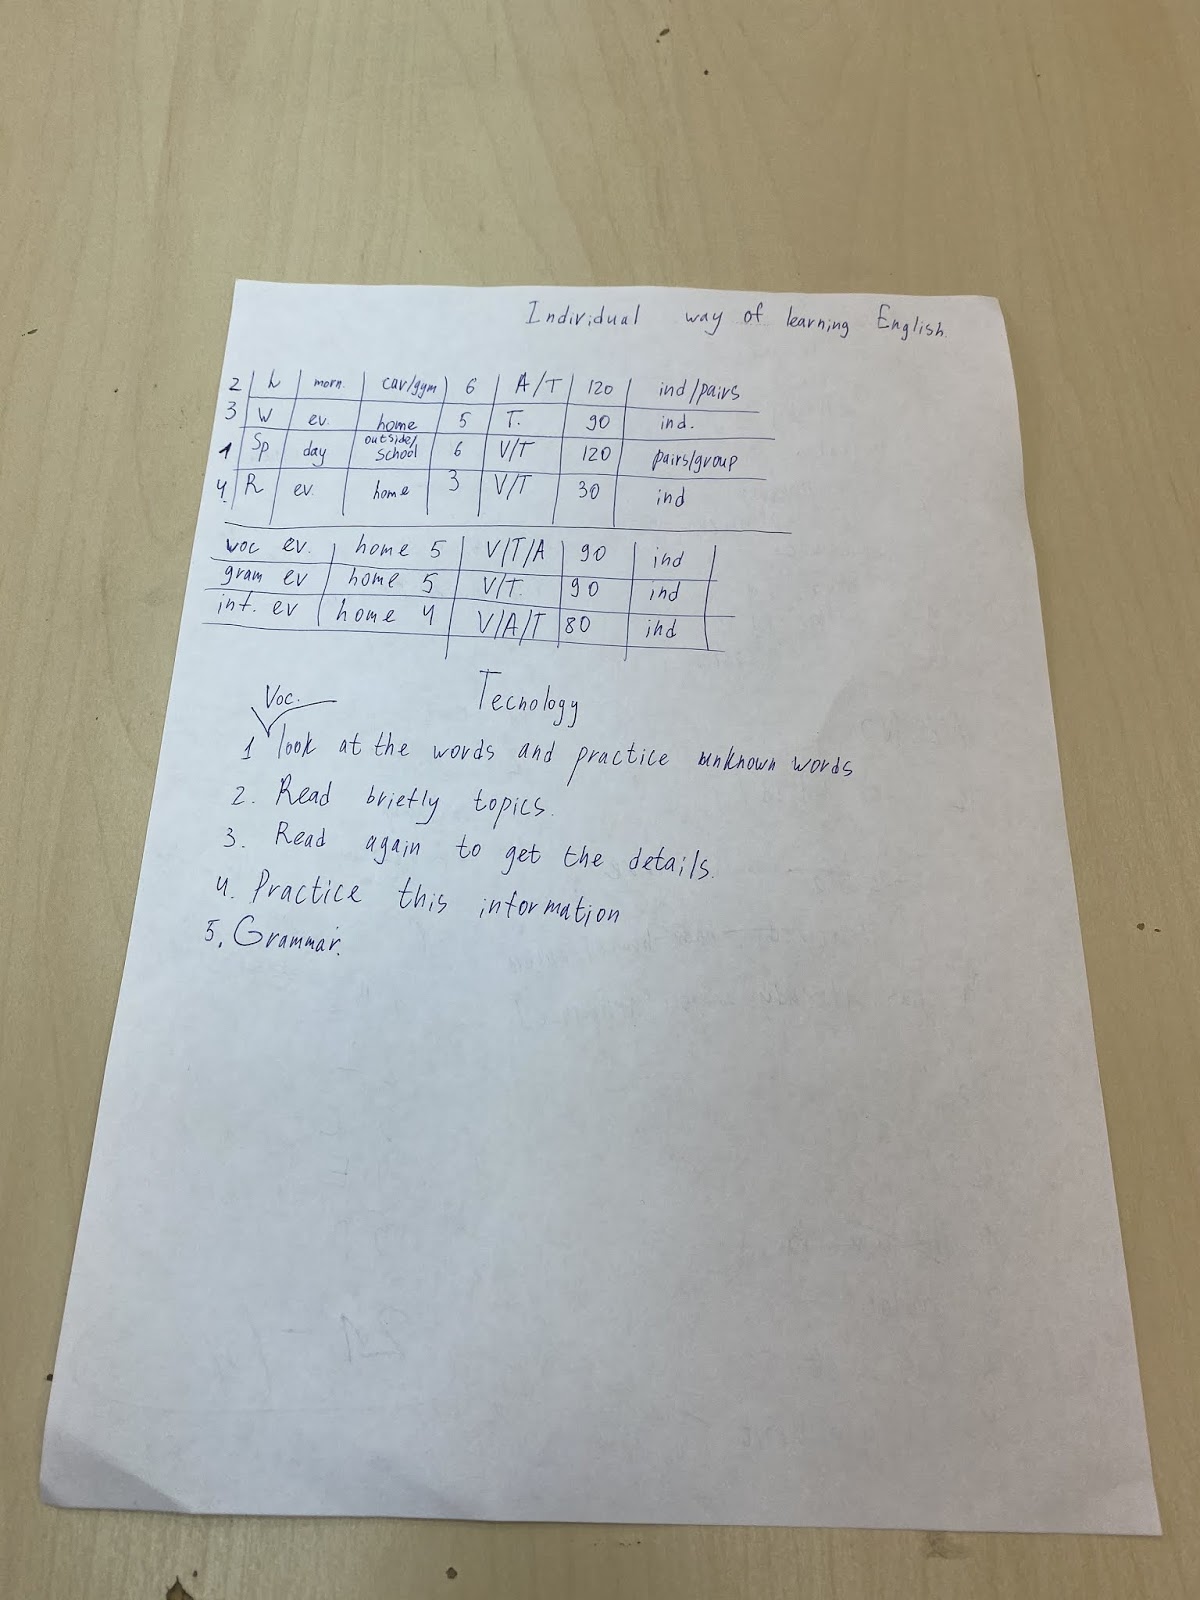 Individual way of learning English.
2 L morn. car/gym 6 A/T 120 ind/pairs
3 W ev. home 5 T. 90 ind.
1 Sp day outside/school 6 V/T 120 pairs/group
4. R ev. home 3 V/T 30 ind
voc ev. home 5 V/T/A 90 ind
gram ev home 5 V/T. 90 ind
int. ev home 4 V/A/T 80 ind
Voc. Tecnology
1 look at the words and practice unknown words
2. Read briefly topics.
3. Read again to get the details.
4. Practice this information
5. Grammar.